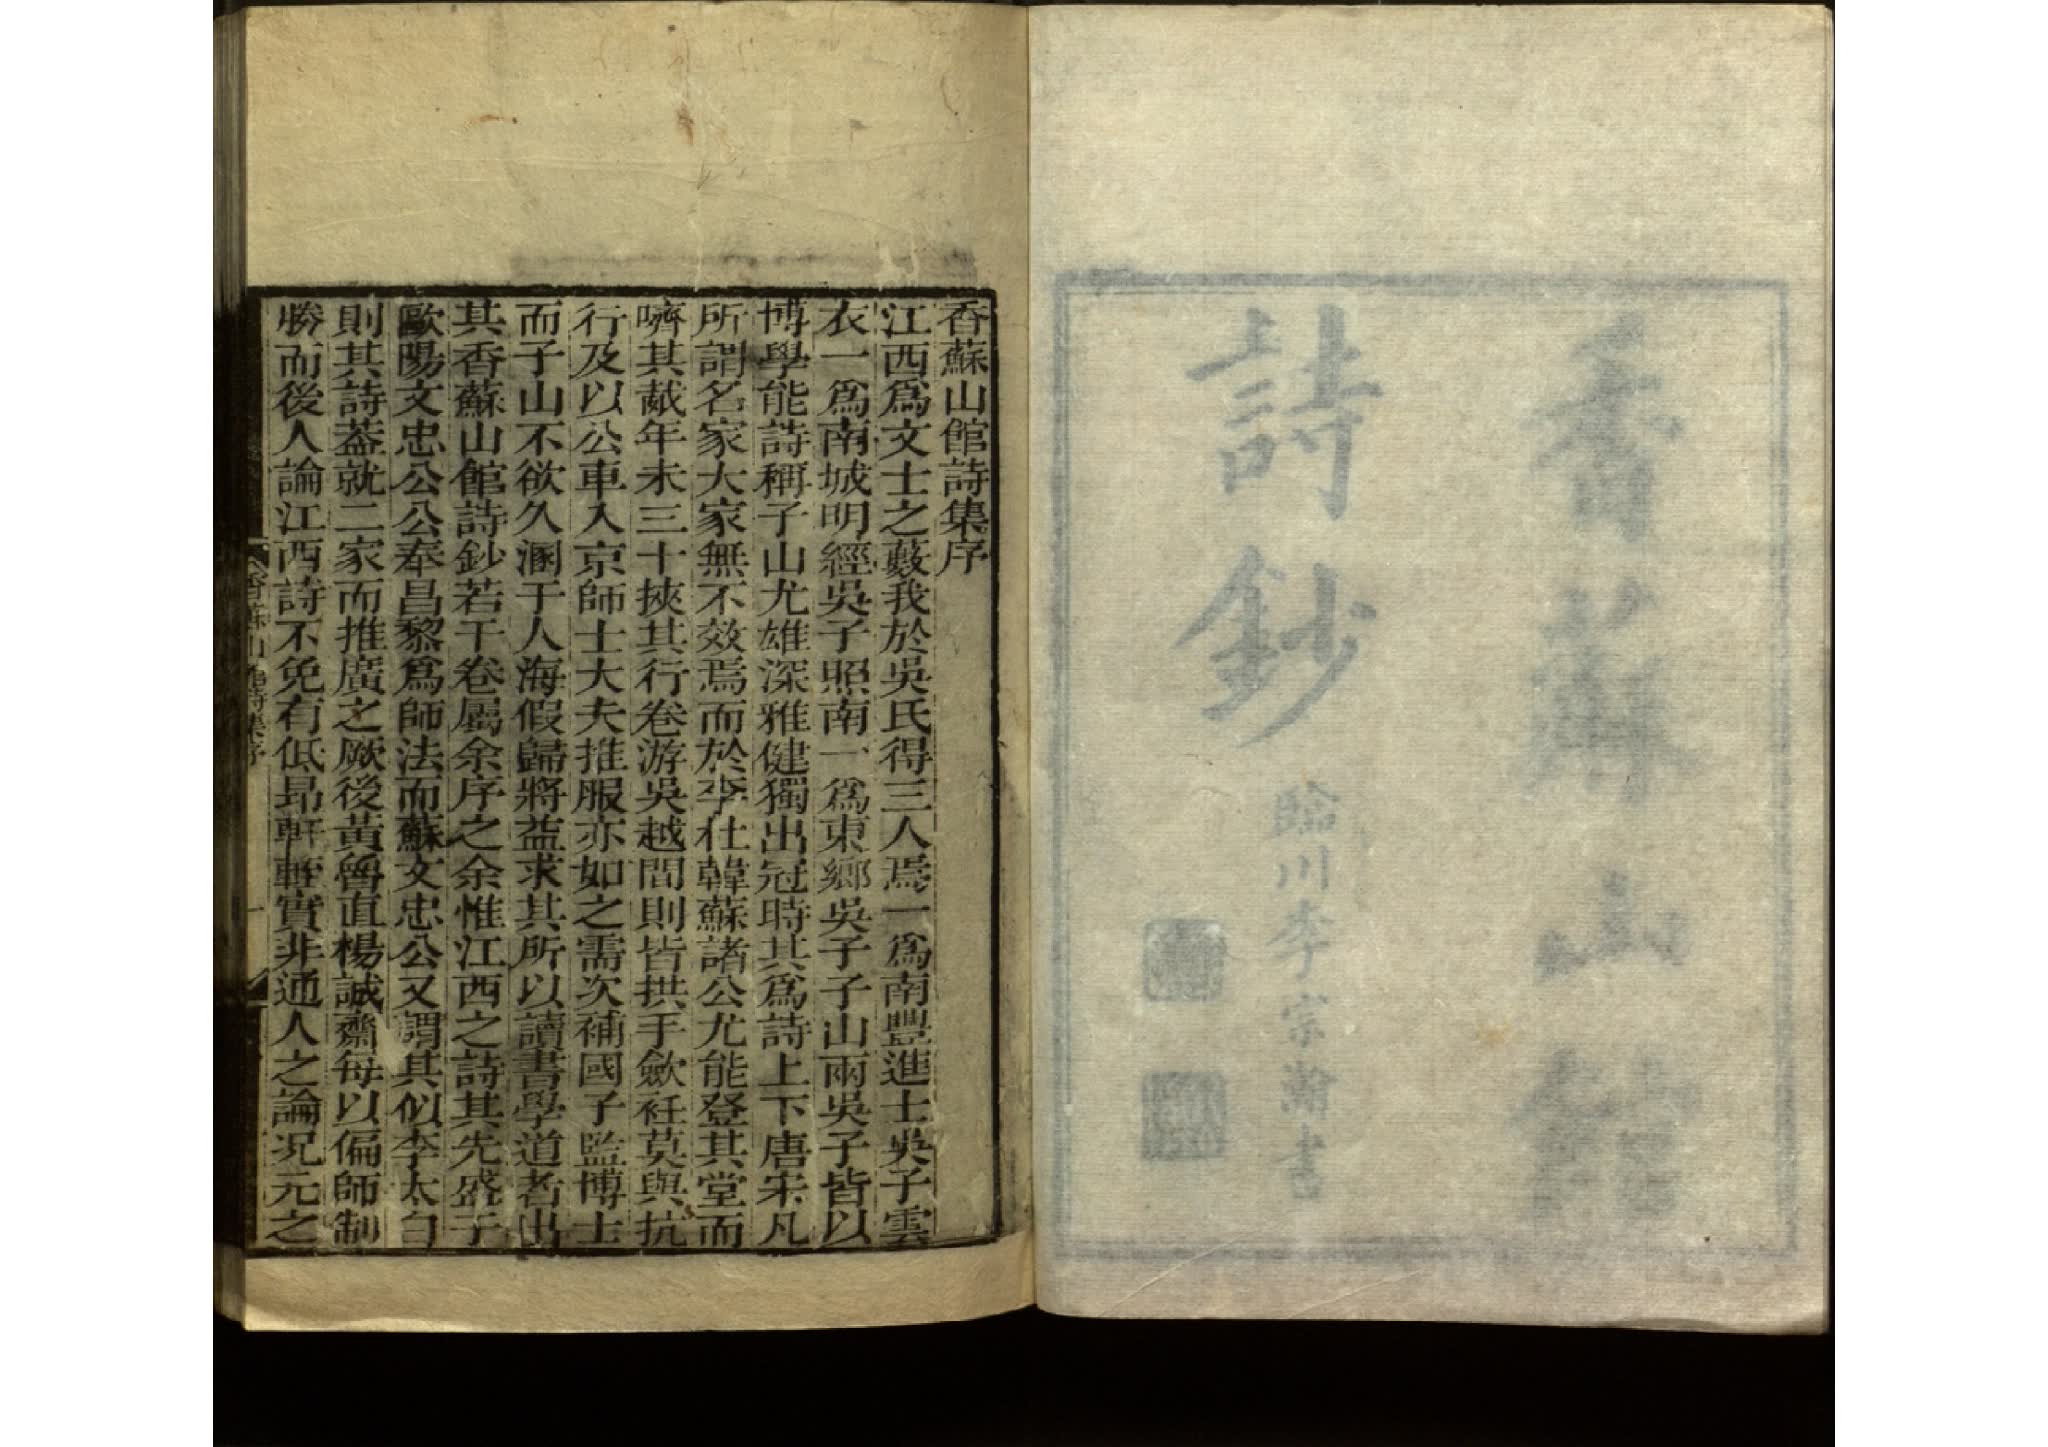 香蘇山館
詩鈔
臨川李宗瀚書
香蘇山館詩集序
江西爲文士之藪我於吳氏得三人焉一爲南豐進士吳子雲
衣一爲南城明經吳子照南一爲東鄉吳子子山兩吳子皆以
博學能詩稱子山尤雄深雅健獨出冠時其爲詩上下唐宋凡
所謂名家大家無不效焉而於李杜韓蘇諸公尤能登其堂而
嚌其胾年未三十挾其行卷游吳越間則皆拱手歛衽莫與抗
行及以公車入京師士大夫推服亦如之需次補國子監博士
而子山不欲久溷于人海假歸將益求其所以讀書學道者出
其香蘇山館詩鈔若干卷屬余序之余惟江西之詩其先盛于
歐陽文忠公公奉昌黎爲師法而蘇文忠公又謂其似李太白
則其詩葢就二家而推廣之厥後黃魯直楊誠齋每以偏師制
勝而後人論江西詩不免有低昻軒輊實非通人之論况元之
香蘇山館詩集序
一